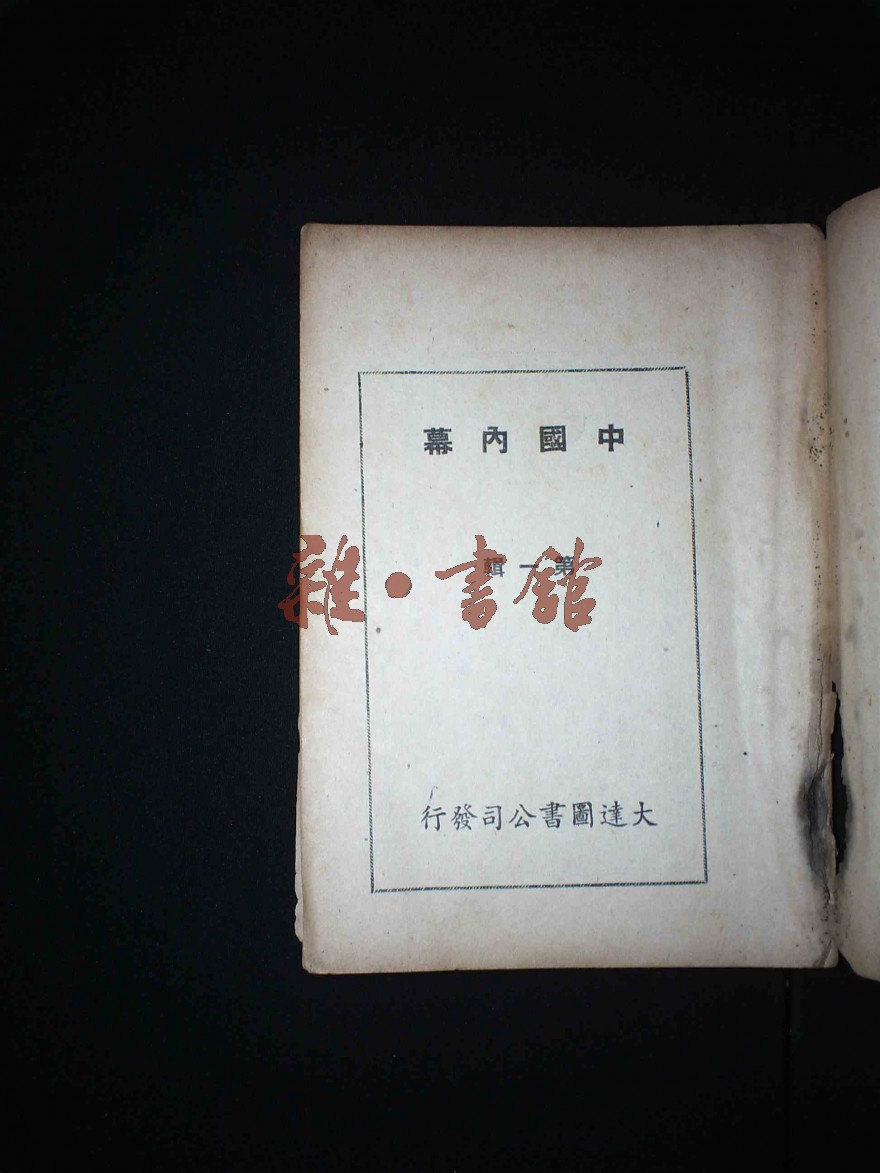 中國內幕
第一輯
雜·書館
大達圖書公司發行